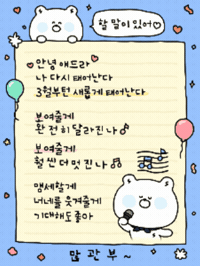 할 말이 있어♡
안녕 얘드라
나 다시 태어난다
3월부턴 새롭게 태어난다
보여줄게
완전히 달라진 나
보여줄게
훨씬 더 멋진 나
맹세할게
너네를 웃겨줄게
기대해도 좋아
많관부~